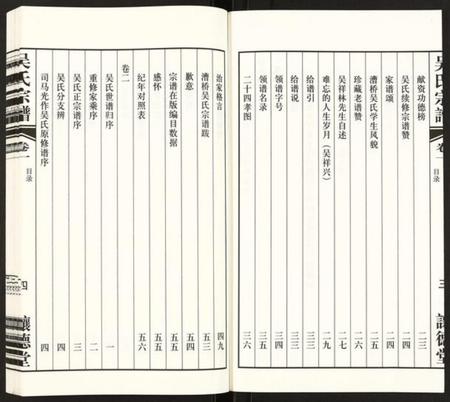 吴氏宗谱
卷一
目录
三
讓德堂
献资功德榜 二三
吴氏续修宗谱赞 二四
家谱颂 二四
漕桥吴氏学生风貌 二六
珍藏老谱赞 二六
吴祥林先生自述 二七
难忘的人生岁月（吴祥兴） 二九
给谱引 三一
给谱说 三三
领谱字号 三四
领谱名录 三五
二十四孝图 三六
治家格言 四九
漕桥吴氏宗谱跋 五三
歉意 五四
宗谱在版编目数据 五五
感怀 五五
纪年对照表 五六
卷二
吴氏世谱归序 一
重修家乘序 二
吴氏正宗谱序 三
吴氏分支辨 四
司马光作吴氏原修谱序 四
吴氏宗谱
卷一
目录
四
讓德堂